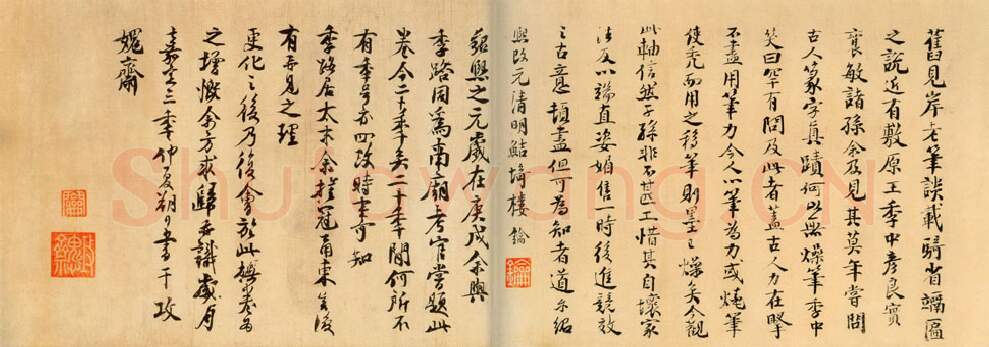 舊見岸老筆談載騎省匾
之說近有敷原王季中彥良實
襄敏諸孫余及見其莫年嘗問
古人篆字真蹟何以無燥筆季中
笑曰罕有問及此者蓋古人力在掔
不盡用筆力今人以筆為力或燒筆
使禿而用之移筆則墨已燥矣今觀
此軸信然子孫非不甚工惜其自壞家
法反以端直姿媚售一時後進競效
之古意頓盡但可為知者道尒紹
熙改元清明鮚埼樓鑰
紹熙之元歲在庚戌余與
季路同為南廟考官嘗題此
卷今二十年矣二十年間何所不
有年号亦四改時事可知
季路居太末余挂冠甬東豈復
有再見之理
更化之後乃復會於此撫卷為
之增慨余方求歸并識歲月
嘉定三年仲夏朔日書于攻
媿齋
Shufawang.CN